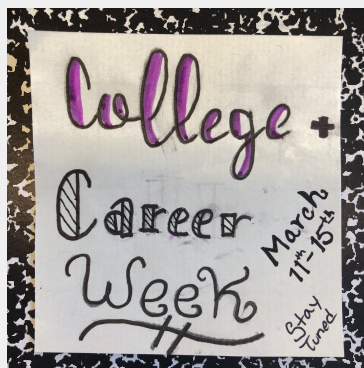 College +
Career
Week
March
11th-15th
Stay
Tuned